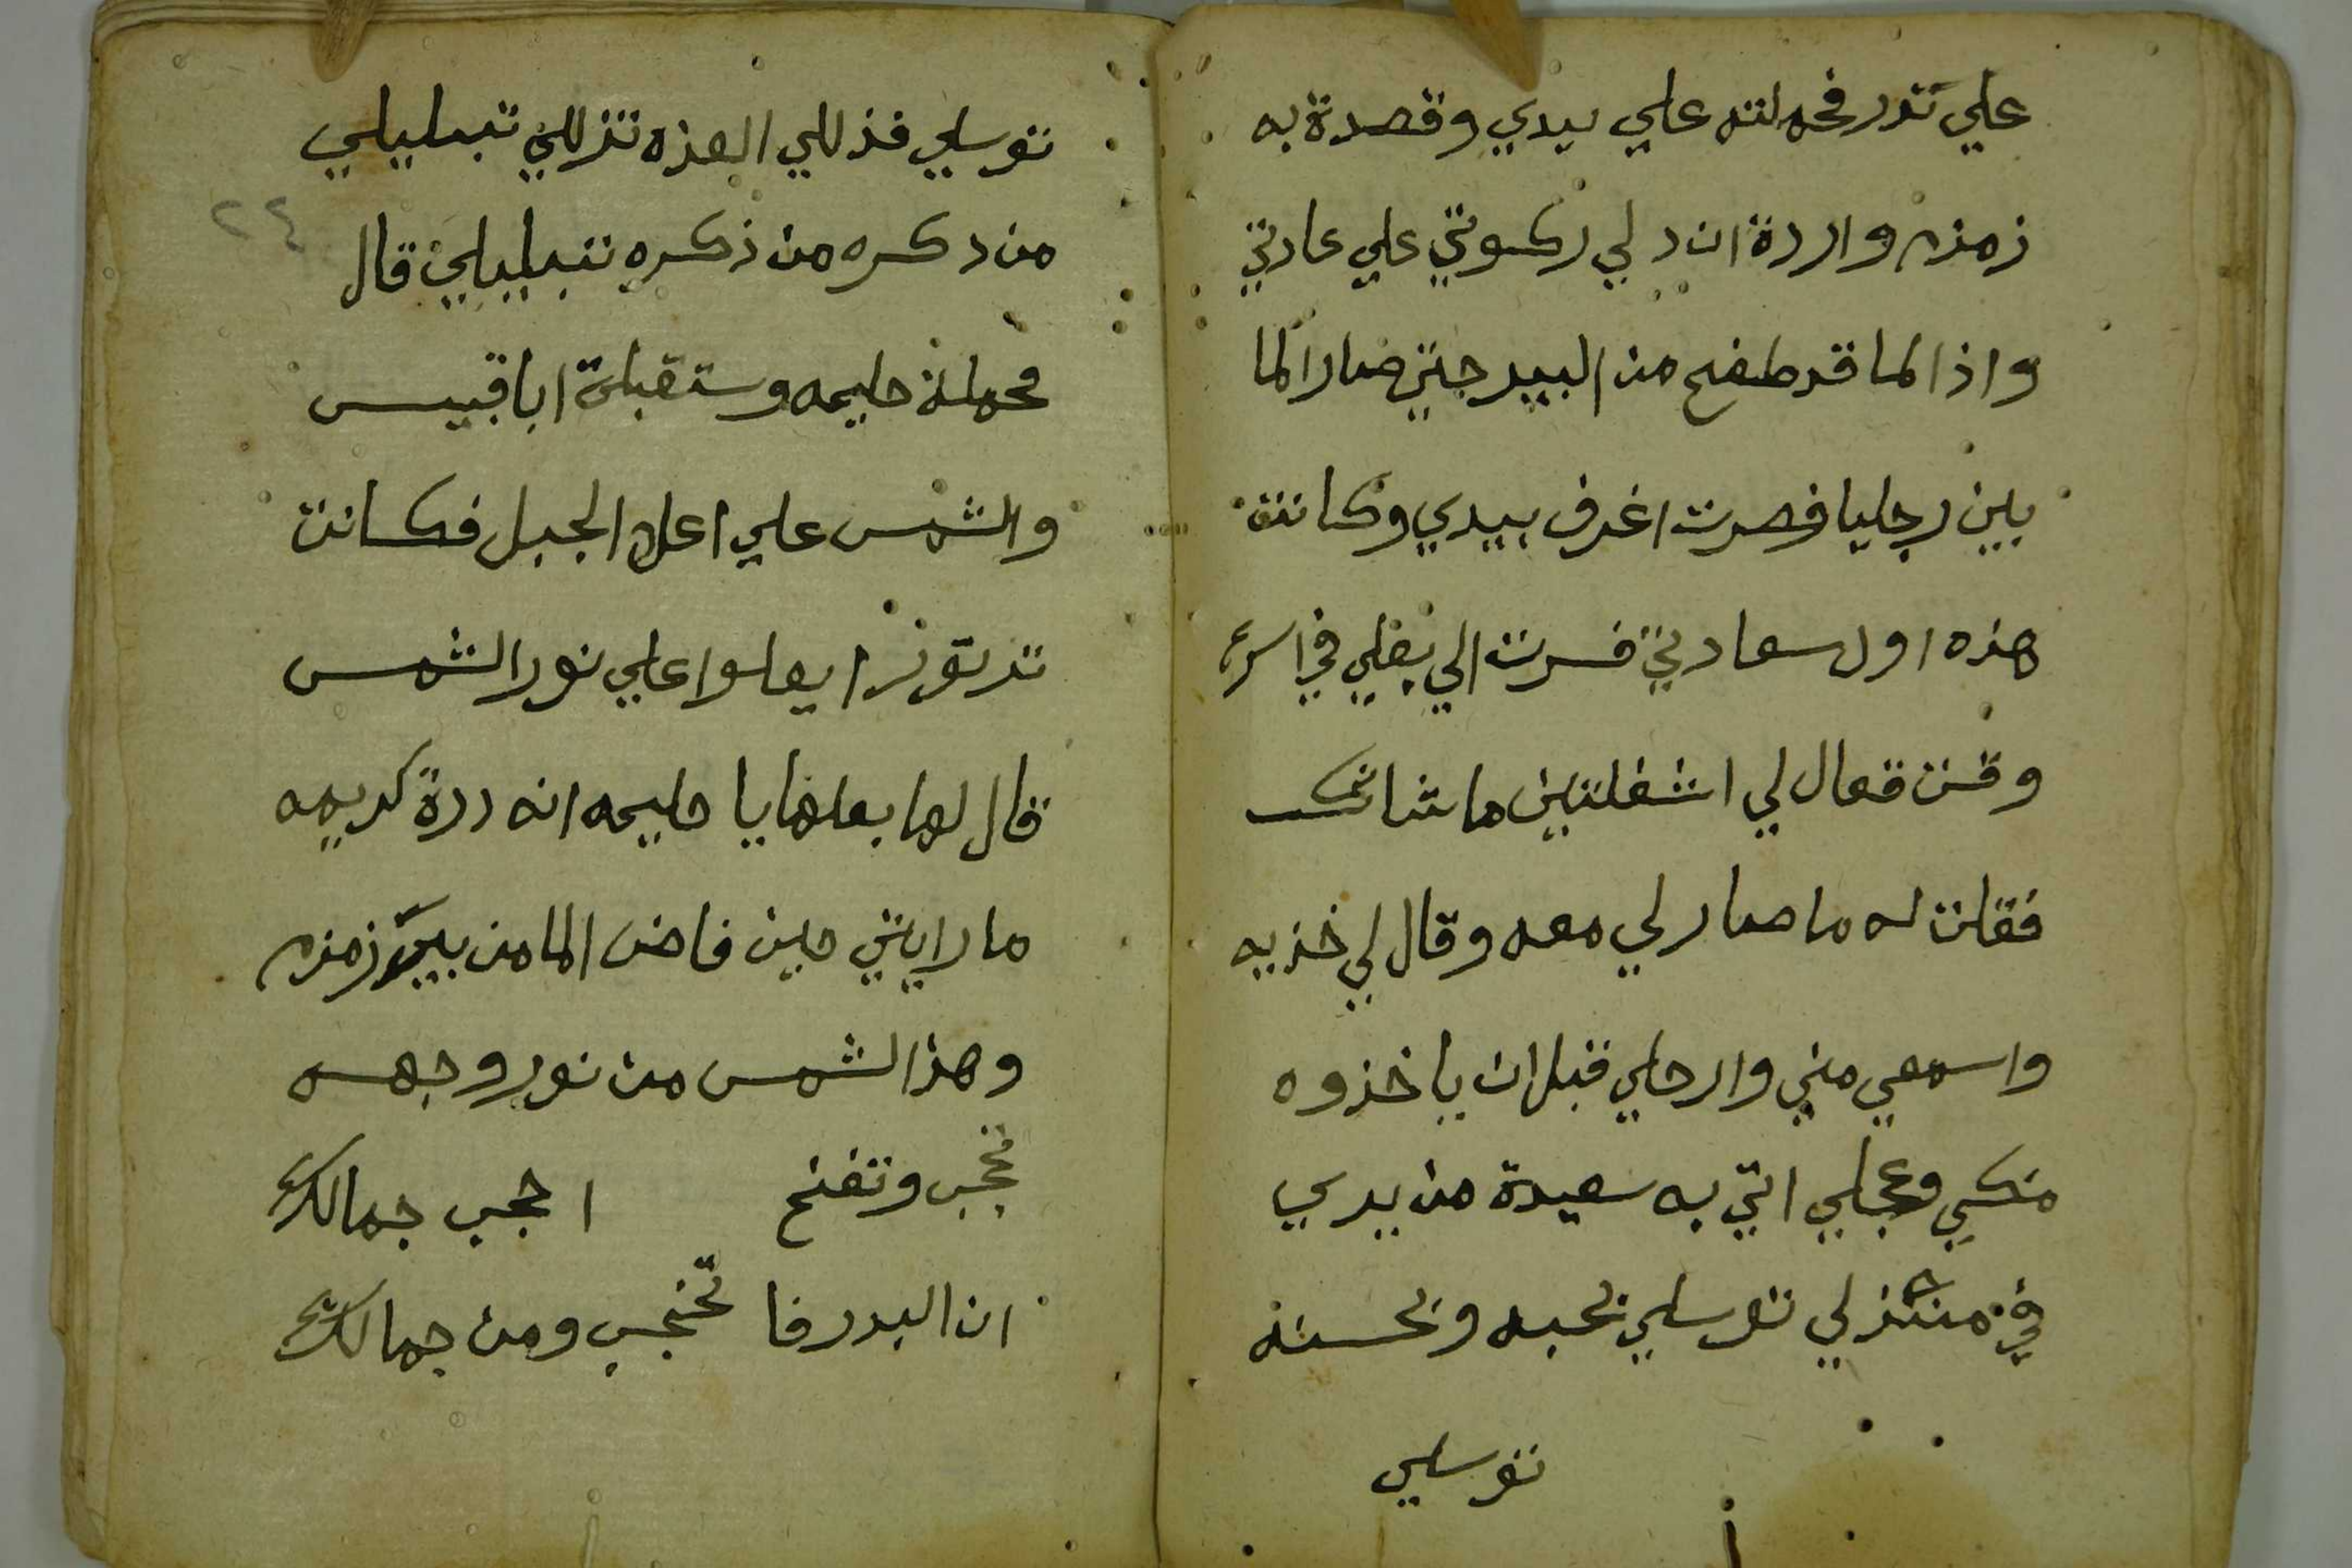 علي تدر فحملته علي يدي وقصدة به
زمزم واردة ان دلي ركوتي علي عادتي
واذا الما قد طفح من البير حتي صار الما
بين رجليا فصرت اغرف بيدي وكانت
هذه اول سعادتي فسرت الي بعلي في اسرع
وقت فعال لي اشغلتين ماشانك
فقلت له ما صار لي معه وقال لي خذيه
واسمعي مني وارحلي قبل ان ياخذوه
منكي وعجلي اتي به سعيدة من يدي
في منزلي توسلي بحبه وبحسنه
توسلي
توسلي فذللي العزه تذللي تبليلي
٢٤
من دكره من ذكره تبليلي قال
فحملة حليمه وستقبلة ابا قبيس
والشمس علي اعلا الجبل فكانت
تدر نورا يعلوا علي نور الشمس
قال لها بعلها يا حليمه انه درة كريمه
ما رايتي حين فاض الما من بير زمزم
وهذا الشمس من نور وجهه
تحجب وتفتح ا حجب جمالك
ان البدر فا تحتجب ومن جمالك